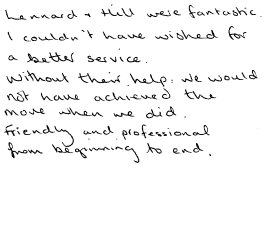 Lennard + Hill were fantastic.
I couldn't have wished for
a better service.
Without their help, we would
not have achieved the
move when we did.
Friendly and professional
from beginning to end.